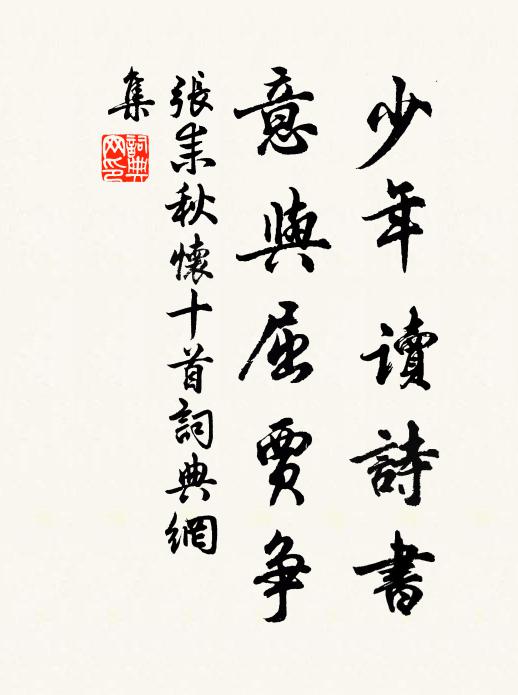 少年讀詩書
意與屈賈争
張耒秋懷十首詞典網
集
詞典
网印